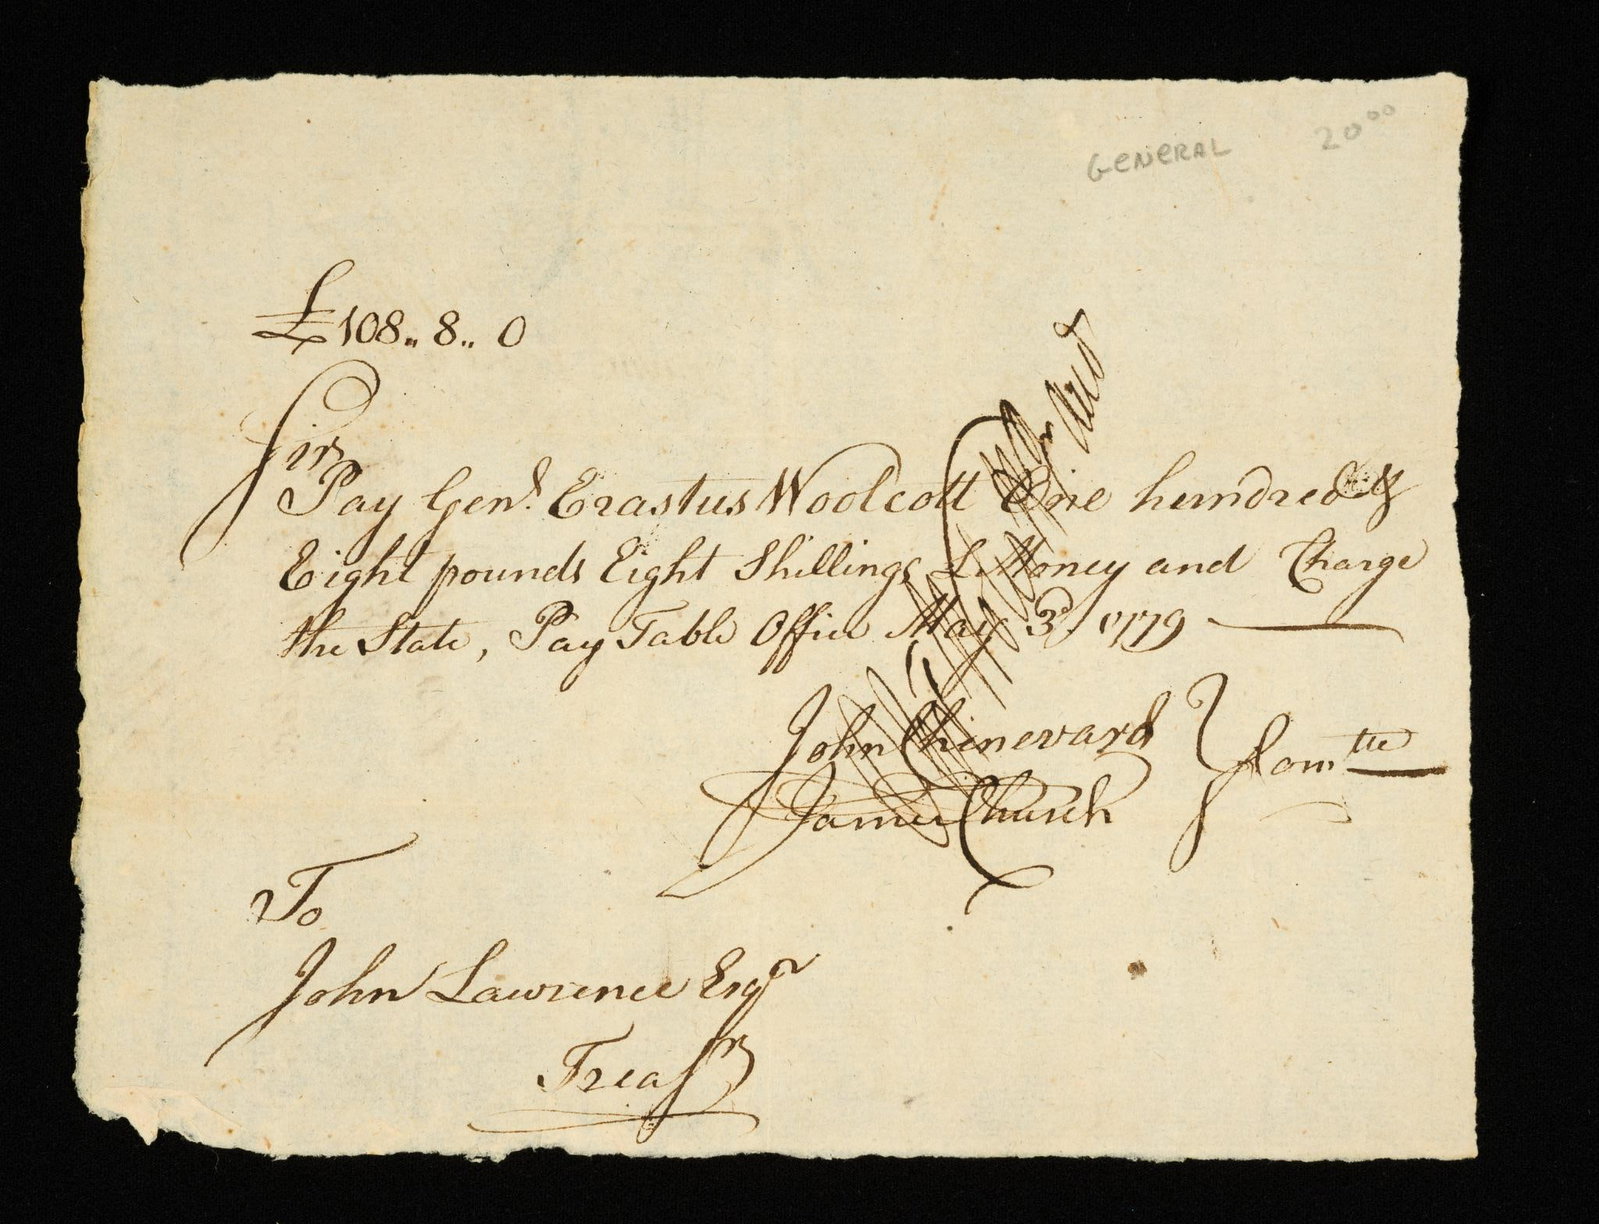 GENERAL 20⁰⁰
£108,, 8,, 0
Sir
Pay Genˡ. Erastus Woolcott One hundred &
Eight pounds Eight Shillings L Money and Charge
the State, Pay Table Office May 3ᵈ 1779
John Chenevard
James Church
Comᵗᵗᵉᵉ
To
John Lawrence Esqʳ
Treasʳ